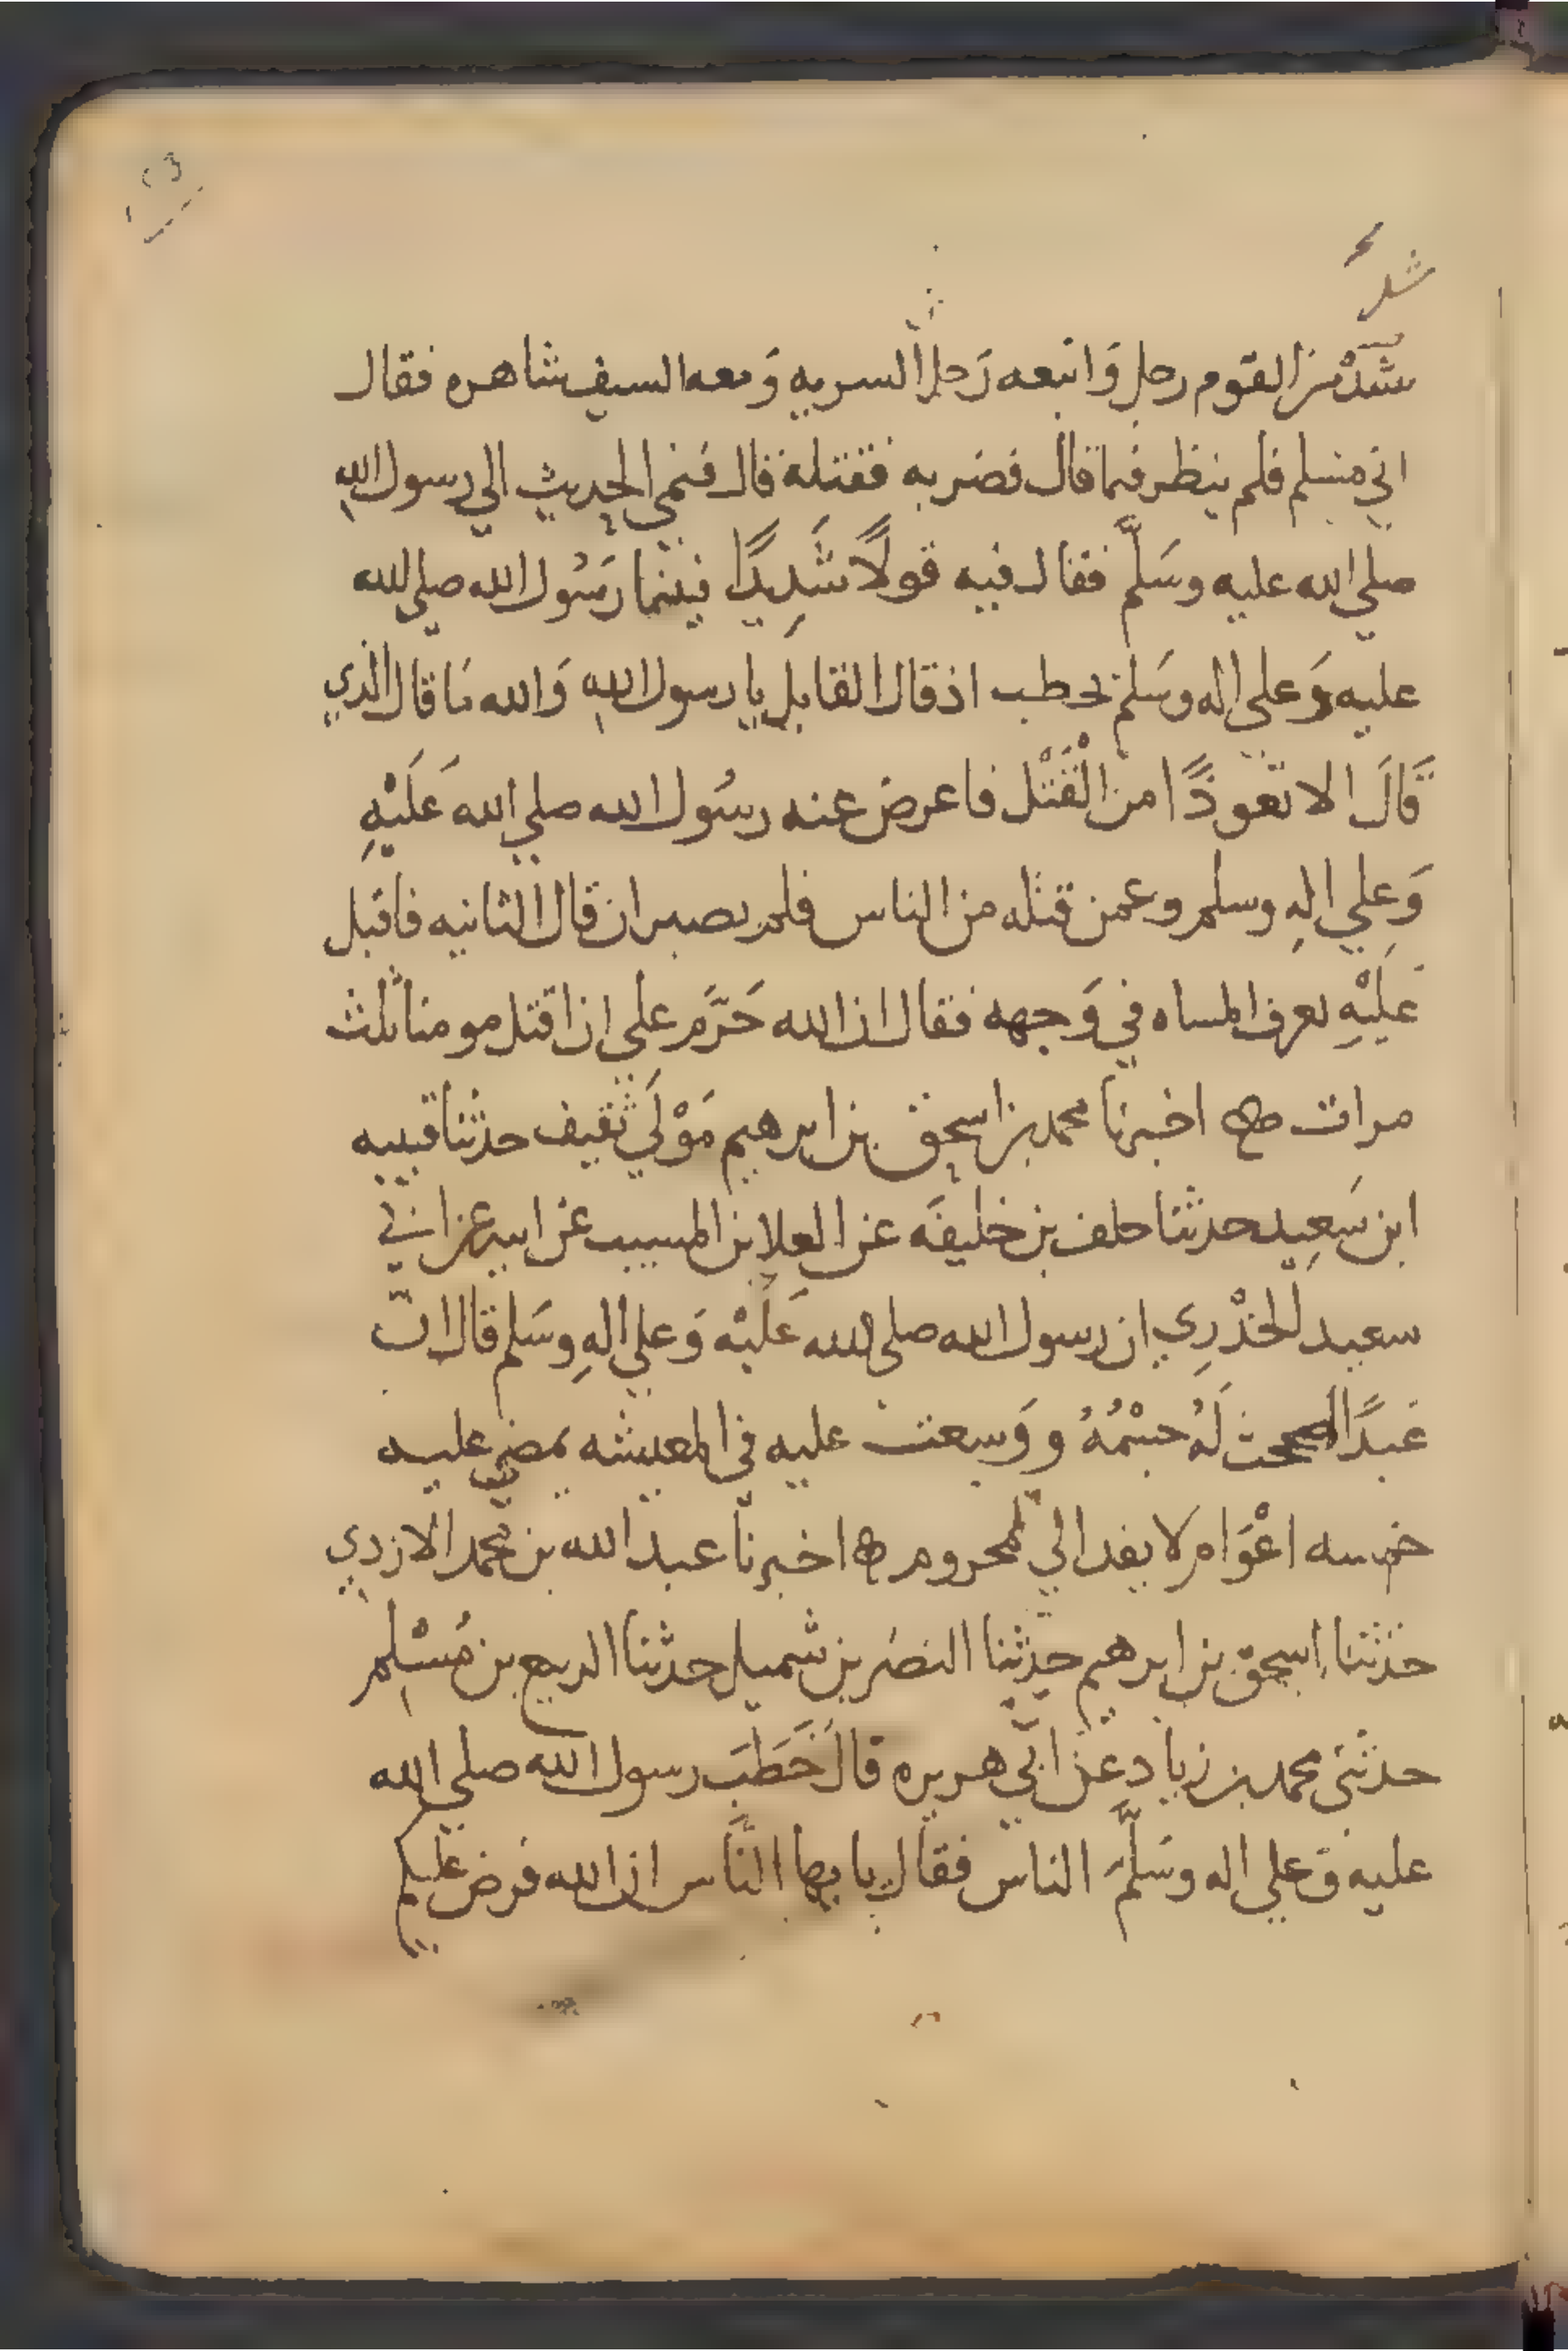 شد
شد من القوم رجل وَاتبعه رَجل السريه وَمعه السيف شاهره فقال
اني مسلم فلم ينظر فيما قال فضربه فقتله قال فنمي الحديث الي رسول اللهِ
صلي الله عليه وسَلَّم فقال فيه قولًا شَدِيدًا فبينما رَسُول الله صلي الله
عليه وَعلي اله وسَلم يخطب اذ قال القايل يا رسول اللهِ وَالله مَا قال الذي
قَالَ الا تعوذًا من الْقَتْل فاعرض عنه رسُول الله صلي الله عَلَيْهِ
وَعلي الهِ وسلم وعمن قبله من الناس فلم يصبر ان قال الثانيه فاقبل
عَليْهِ تعرف المساه في وَجهه فقال ان الله حَرَّم علي ان اقتل مومنا ثلث
مرات اخبرنا محمد بن اسحق بن ابرهيم مَوْلَي ثقيف حدثنا قتيبه
ابن سَعِيد حدثنا خلف بن خليفَه عن العلا بن المسيب عن ابيه عن ابي
سعيد الخدْرِي ان رسول الله صلي الله عَلَيْه وَعلي الهِ وسَلم قال انّ
عَبدًا اصححت لَهُ جسْمُهُ و وَسعت عليه في المعيشه يمضي عليه
خمسه اعْوَام لا يفد الي لمحروم اخبرنا عبد الله بن محمد الازدي
حَدثنا اسحق بن ابرهيم حدثنا النضر بن شميل حدثنا الربيع بن مُسْلِم
حدثني محمد بن زياد عن ابي هريره قالَ خَطَبَ رسول الله صلي الله
عليه وَعلي اله وسَلَّمَ الناس فقال يا يها النَّاس ان الله فرض عليكم